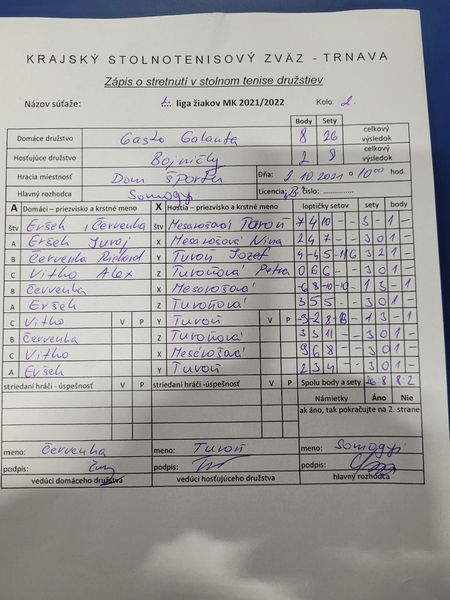 KRAJSKÝ STOLNOTENISOVÝ ZVÄZ - TRNAVA
Zápis o stretnutí v stolnom tenise družstiev
Názov súťaže: 1. liga žiakov MK 2021/2022 Kolo: 2.
Body Sety
Domáce družstvo Gasto Galanta 8 26 celkový výsledok
Hosťujúce družstvo Bojničky 2 8 celkový výsledok
Hracia miestnosť Dom športu Dňa: 2.10.2021 o 10:00 hod.
Hlavný rozhodca Somogyi Licencia: číslo:
A Domáci – priezvisko a krstné meno X Hostia – priezvisko a krstné meno loptičky setov sety body
štv Eršek, Červenka štv Mesarošová Turoň 7 4 10 - - 3 - 1 -
A Eršek Juraj X Mesarošová Nina 2 4 7 - - 3 0 1 -
B Červenka Richard Y Turoň Jozef 3 2 1 -
C Vitho Alex Z Turoňová Petra 0 6 6 - - 3 0 1 -
B Červenka X Mesarošová 1 3 - 1
A Eršek Z Turoňová 3 5 5 - - 3 0 1 -
C Vitho V P Y Turoň V P 1 3 - 1
B Červenka Z Turoňová 3 3 11 - - 3 0 1 -
C Vitho X Mesarošová 9 6 8 - - 3 0 1 -
A Eršek Y Turoň 2 3 4 - - 3 0 1 -
striedaní hráči - úspešnosť V P striedaní hráči -úspešnosť V P Spolu body a sety 26:8 8:2
Námietky Áno Nie
ak áno, tak pokračujte na 2. strane
meno: Červenka meno: Turoň meno: Somogyi
podpis: podpis: podpis:
vedúci domáceho družstva vedúci hosťujúceho družstva hlavný rozhodca